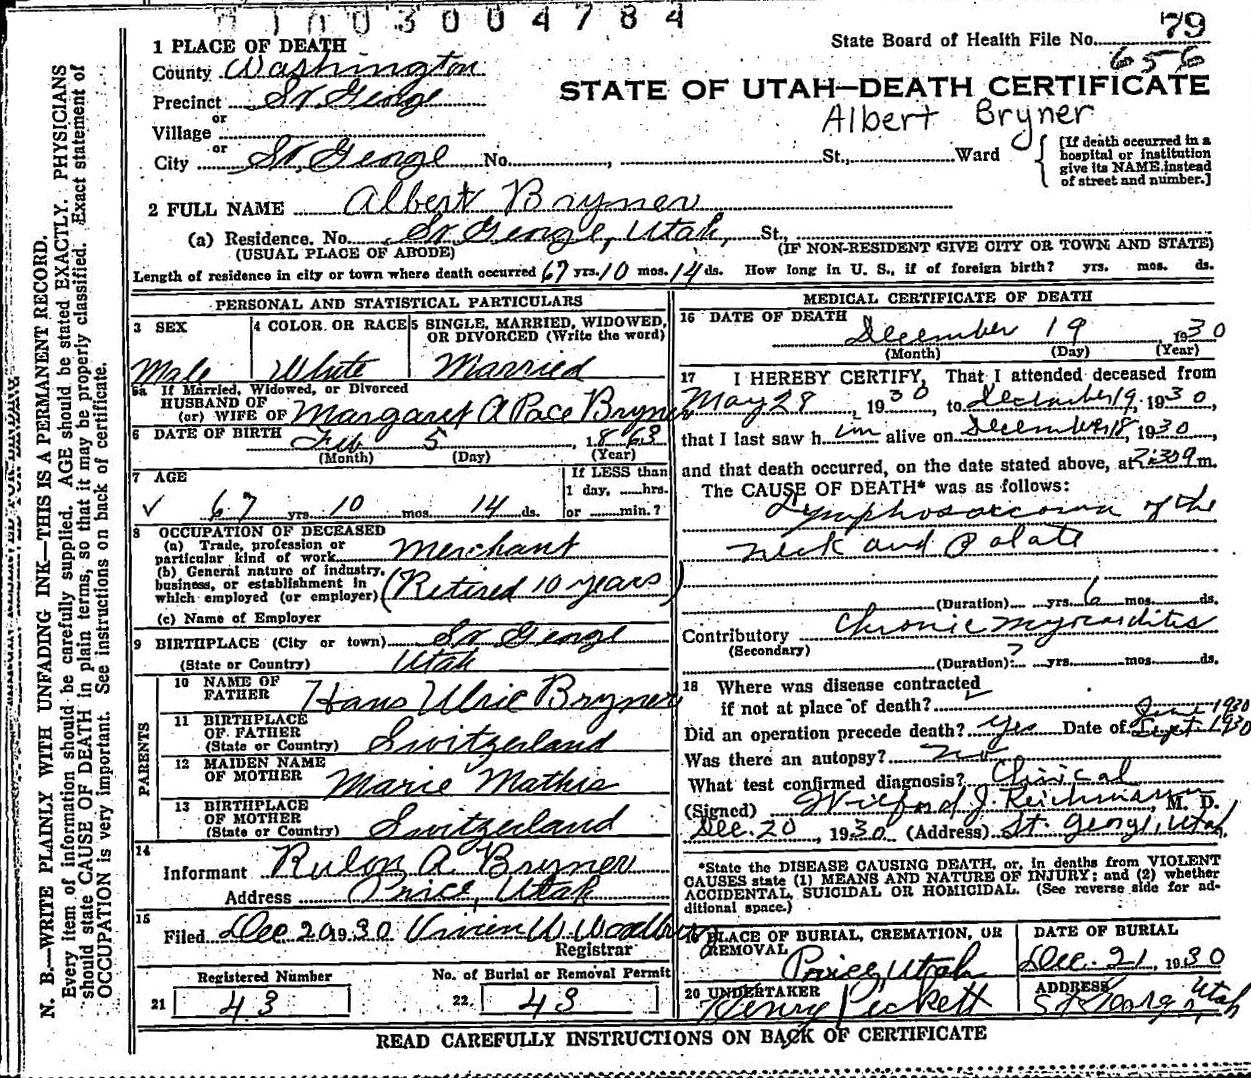 003004784
79
State Board of Health File No. 656
STATE OF UTAH—DEATH CERTIFICATE
Albert Bryner
1 PLACE OF DEATH
County Washington
Precinct St. George
or
Village
or
City St. George No. , St., Ward
{[If death occurred in a
hospital or institution
give its NAME instead
of street and number.]
2 FULL NAME Albert Bryner
(a) Residence. No. St. George, Utah, St.,
(USUAL PLACE OF ABODE) (IF NON-RESIDENT GIVE CITY OR TOWN AND STATE)
Length of residence in city or town where death occurred 67 yrs. 10 mos. 14 ds. How long in U. S., if of foreign birth? yrs. mos. ds.
PERSONAL AND STATISTICAL PARTICULARS
3 SEX
Male
4 COLOR OR RACE
White
5 SINGLE, MARRIED, WIDOWED,
OR DIVORCED (Write the word)
Married
5a If Married, Widowed, or Divorced
HUSBAND OF
(or) WIFE OF Margaret A Pace Bryner
6 DATE OF BIRTH Feb 5, 1863
(Month) (Day) (Year)
7 AGE
67 yrs. 10 mos. 14 ds.
If LESS than
1 day, hrs.
or min.?
8 OCCUPATION OF DECEASED
(a) Trade, profession or
particular kind of work Merchant
(b) General nature of industry,
business, or establishment in
which employed (or employer) (Retired 10 years)
(c) Name of Employer
9 BIRTHPLACE (City or town) St George
(State or Country) Utah
PARENTS
10 NAME OF
FATHER Hans Ulric Bryner
11 BIRTHPLACE
OF FATHER
(State or Country) Switzerland
12 MAIDEN NAME
OF MOTHER Marie Mathis
13 BIRTHPLACE
OF MOTHER
(State or Country) Switzerland
14
Informant Rulon A. Bryner
Address Price, Utah
15
Filed Dec 20 1930 W.
Registrar
Registered Number
21 43
No. of Burial or Removal Permit
22. 43
MEDICAL CERTIFICATE OF DEATH
16 DATE OF DEATH
December 19 1930
(Month) (Day) (Year)
17 I HEREBY CERTIFY, That I attended deceased from
May 28, 1930, to December 19, 1930,
that I last saw him alive on December 18, 1930,
and that death occurred, on the date stated above, at m.
The CAUSE OF DEATH* was as follows:
Lymphosarcoma of the
neck and Palate
(Duration) yrs. 6 mos. ds.
Contributory Chronic Myocarditis
(Secondary)
(Duration) ? yrs. mos. ds.
18 Where was disease contracted
if not at place of death?
Did an operation precede death? yes Date of June 1930
Sept. 1930
Was there an autopsy? no
What test confirmed diagnosis? Clinical
(Signed) Wilford J. Reichmann, M. D.
Dec. 20, 1930 (Address) St. George, Utah
*State the DISEASE CAUSING DEATH, or, in deaths from VIOLENT
CAUSES state (1) MEANS AND NATURE OF INJURY; and (2) whether
ACCIDENTAL, SUICIDAL OR HOMICIDAL. (See reverse side for ad-
ditional space.)
19 PLACE OF BURIAL, CREMATION, OR
REMOVAL
Price, Utah
DATE OF BURIAL
Dec. 21, 1930
20 UNDERTAKER
Henry Pickett
ADDRESS
St George, Utah
READ CAREFULLY INSTRUCTIONS ON BACK OF CERTIFICATE
N. B.—WRITE PLAINLY WITH UNFADING INK—THIS IS A PERMANENT RECORD.
Every item of information should be carefully supplied. AGE should be stated EXACTLY. PHYSICIANS
should state CAUSE OF DEATH in plain terms, so that it may be properly classified. Exact statement of
OCCUPATION is very important. See instructions on back of certificate.